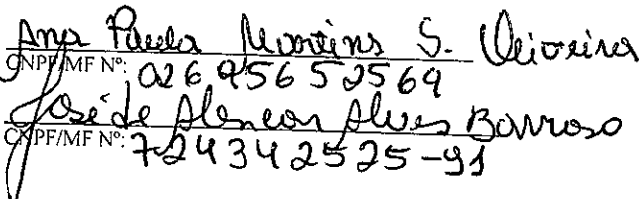 Ana Paula Martins S. Oliveira
CNPF/MF Nº: 026 956 525 69
José de Alencar Alves Barroso
CNPF/MF Nº: 724342525-91